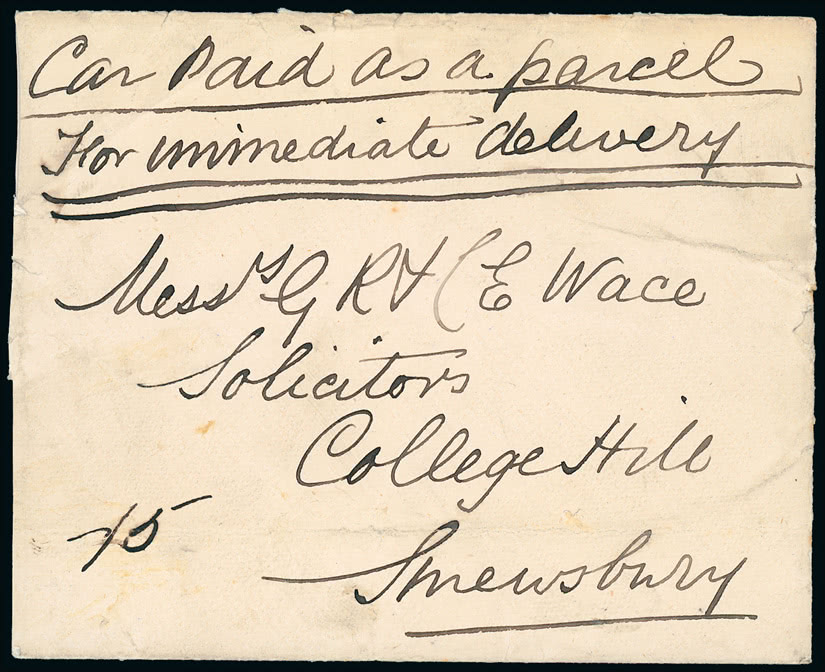 Car Paid as a parcel
For immediate delivery
Mess^rs G R & C E Wace
Solicitors
College Hill
15
Shrewsbury